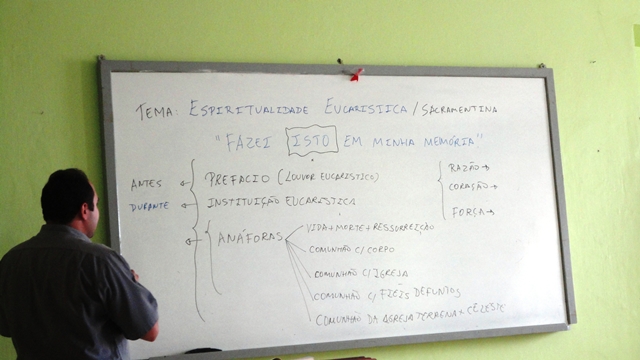 TEMA: ESPIRITUALIDADE EUCARISTICA / SACRAMENTINA
"FAZEI ISTO EM MINHA MEMÓRIA"
ANTES
PREFACIO (LOUVOR EUCARISTICO)
DURANTE
INSTITUIÇÃO EUCARISTICA
ANÁFORAS
VIDA + MORTE + RESSURREIÇÃO
COMUNHÃO C/ CORPO
COMUNHÃO C/ IGREJA
COMUNHÃO C/ FIÉIS DEFUNTOS
COMUNHÃO DA IGREJA TERRENA E CELESTE
RAZÃO →
CORAÇÃO →
FORÇA →